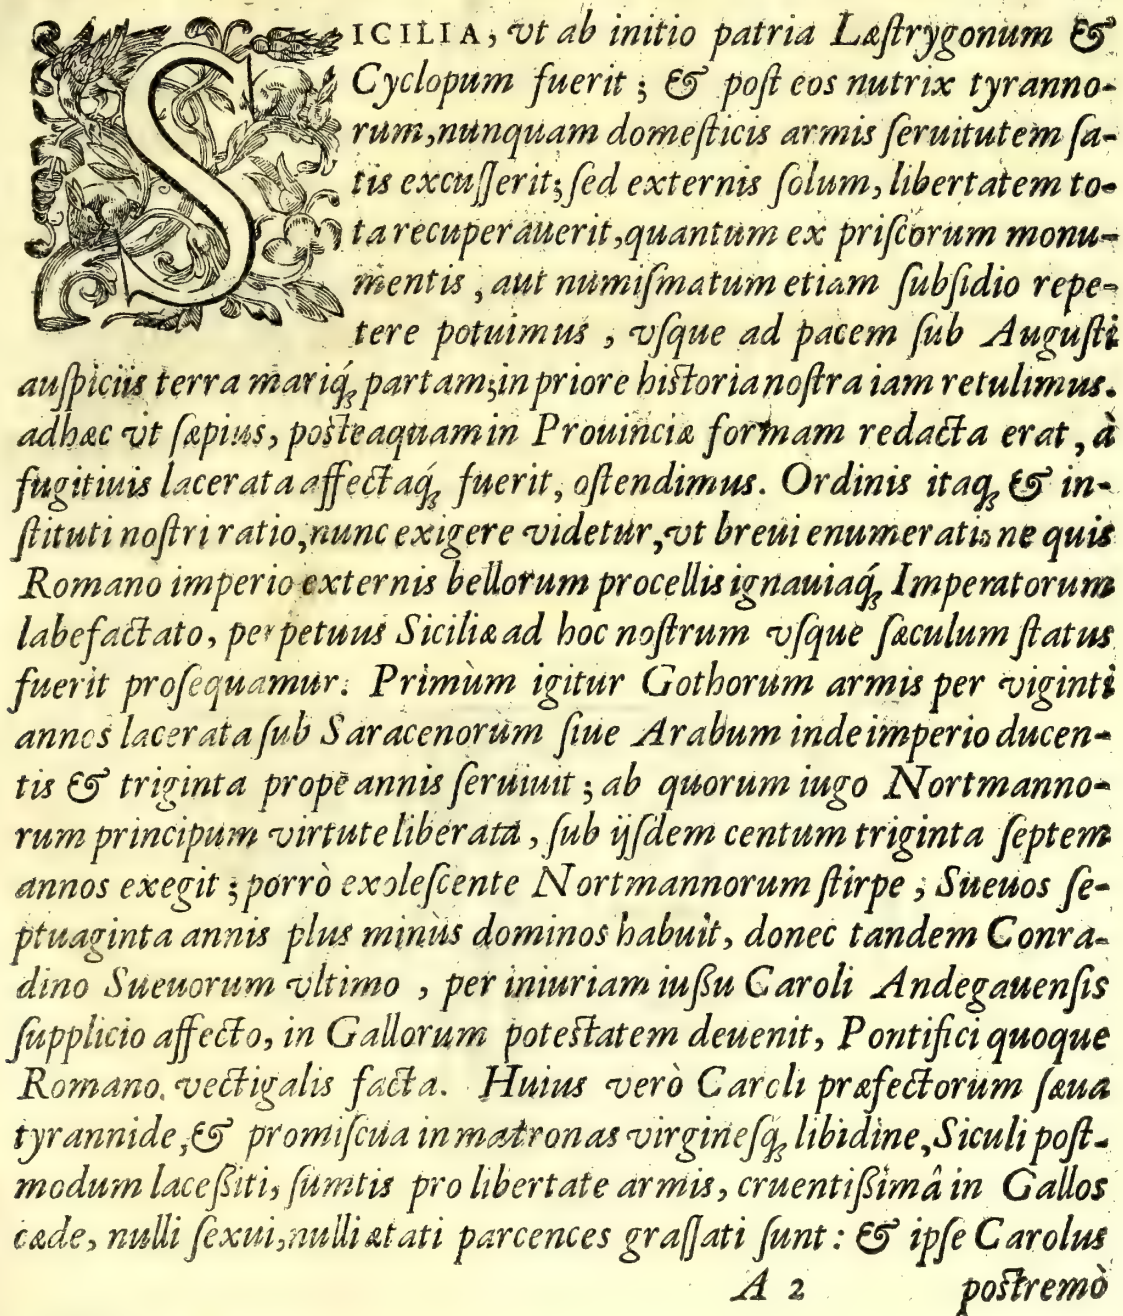 SICILIA, vt ab initio patria Læſtrygonum &
Cyclopum fuerit; & poſt eos nutrix tyranno-
rum, nunquam domeſticis armis ſeruitutem ſa-
tis excuſſerit; ſed externis ſolum, libertatem to-
ta recuperauerit, quantum ex priſcorum monu-
mentis, aut numiſmatum etiam ſubſidio repe-
tere potuimus, vſque ad pacem ſub Auguſti
auſpiciis terra mariq́; partam; in priore hiſtoria noſtra iam retulimus.
adhæc vt ſæpius, poſteaquam in Prouinciæ formam redacta erat, à
fugitiuis lacerata affectaq́; fuerit, oſtendimus. Ordinis itaq; & in-
ſtituti noſtri ratio, nunc exigere videtur, vt breui enumeratione quis
Romano imperio externis bellorum procellis ignauiaq́; Imperatorum
labefactato, perpetuus Siciliæ ad hoc noſtrum vſque ſæculum ſtatus
fuerit proſequamur. Primùm igitur Gothorum armis per viginti
annos lacerata ſub Saracenorum ſiue Arabum inde imperio ducen-
tis & triginta prope annis ſeruiuit; ab quorum iugo Nortmanno-
rum principum virtute liberata, ſub ijſdem centum triginta ſeptem
annos exegit; porrò exoleſcente Nortmannorum ſtirpe, Sueuos ſe-
ptuaginta annis plus minùs dominos habuit, donec tandem Conra-
dino Sueuorum vltimo, per iniuriam iuſſu Caroli Andegauenſis
ſupplicio affecto, in Gallorum poteſtatem deuenit, Pontifici quoque
Romano vectigalis facta. Huius verò Caroli præfectorum ſæua
tyrannide, & promiſcua in matronas virgineſq; libidine, Siculi poſt-
modum laceſſiti, ſumtis pro libertate armis, cruentiſſimâ in Gallos
cæde, nulli ſexui, nulli ætati parcences graſſati ſunt: & ipſe Carolus
A 2 poſtremò